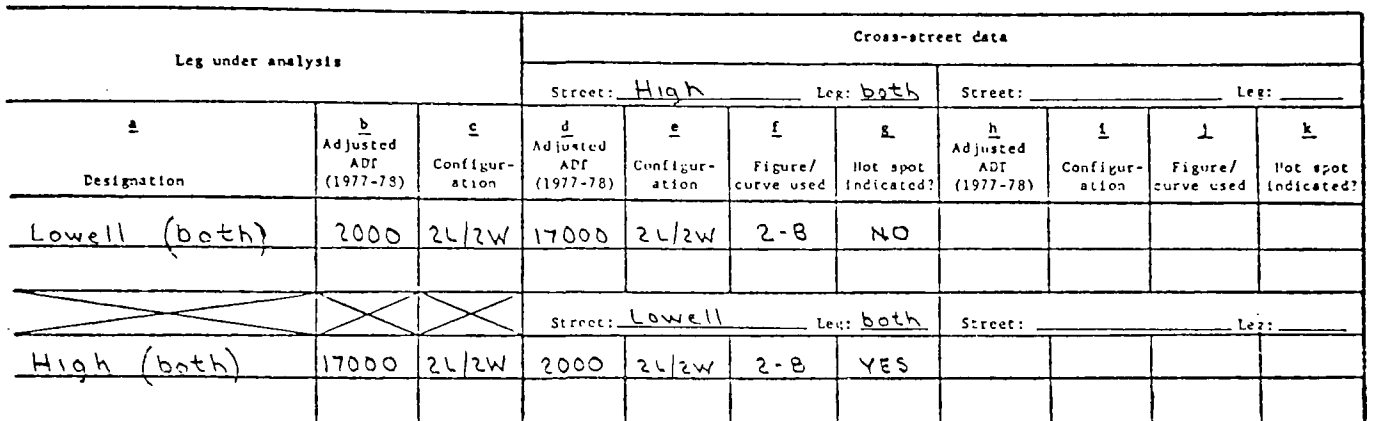 Leg under analysis
Cross-street data
Street: High Leg: both Street: Leg:
a b c d e f g h i j k
Designation Adjusted ADT (1977-78) Configur-ation Adjusted ADT (1977-78) Configur-ation Figure/curve used Hot spot indicated? Adjusted ADT (1977-78) Configur-ation Figure/curve used Hot spot indicated?
Lowell (both) 2000 2L/2W 17000 2L/2W 2-B NO
Street: Lowell Leg: both Street: Leg:
High (both) 17000 2L/2W 2000 2L/2W 2-B YES